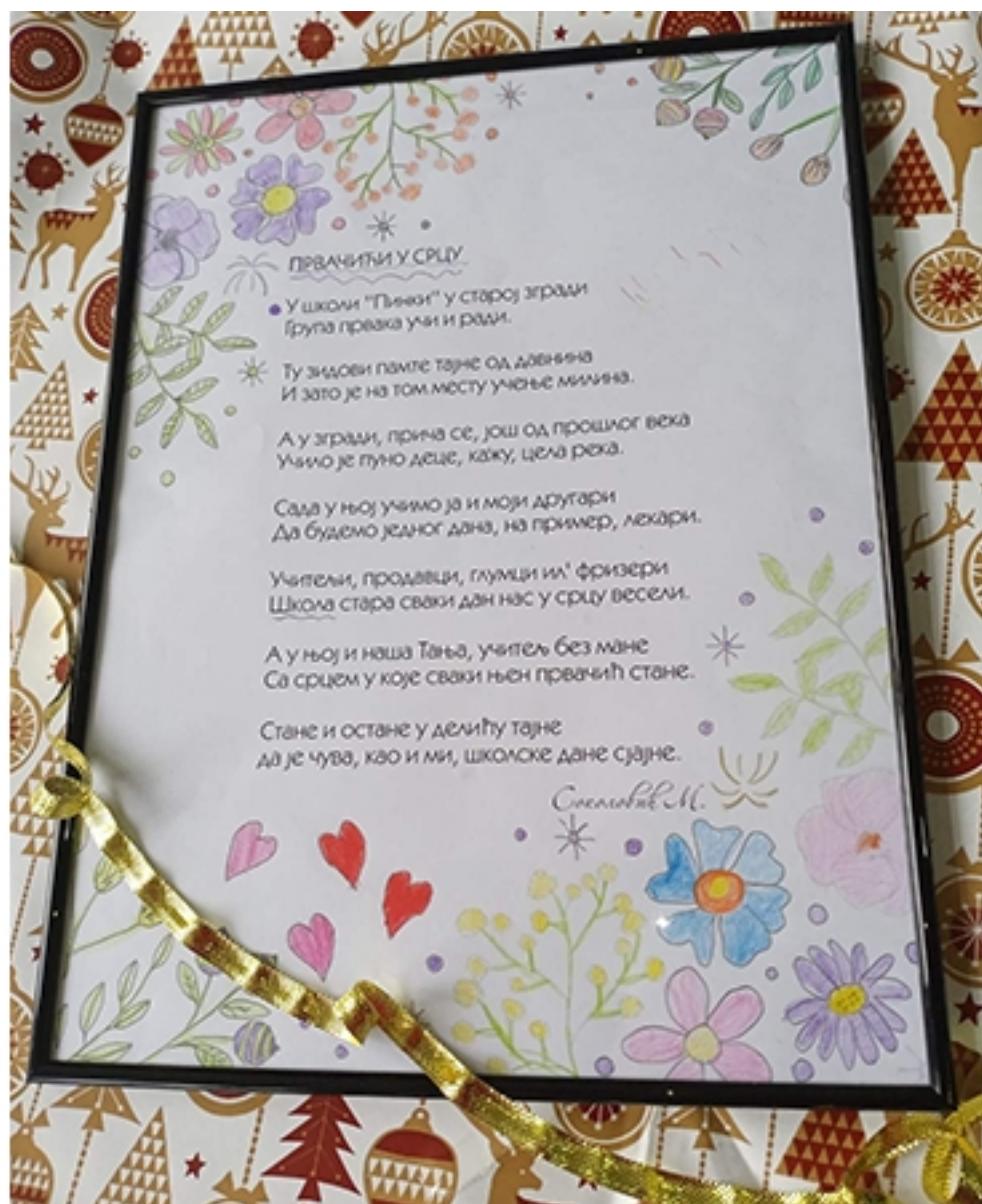 ПРВАЧИЋИ У СРЦУ
У школи "Пинки" у старој згради
Група првака учи и ради.
Ту зидови памте тајне од давнина
И зато је на том месту учење милина.
А у згради, прича се, још од прошлог века
Учило је пуно деце, кажу, цела река.
Сада у њој учимо ја и моји другари
Да будемо једног дана, на пример, лекари.
Учитељи, продавци, глумци ил' фризери
Школа стара сваки дан нас у срцу весели.
А у њој и наша Тања, учитељ без мане
Са срцем у које сваки њен првачић стане.
Стане и остане у делићу тајне
да је чува, као и ми, школске дане сјајне.
Соколовић М.